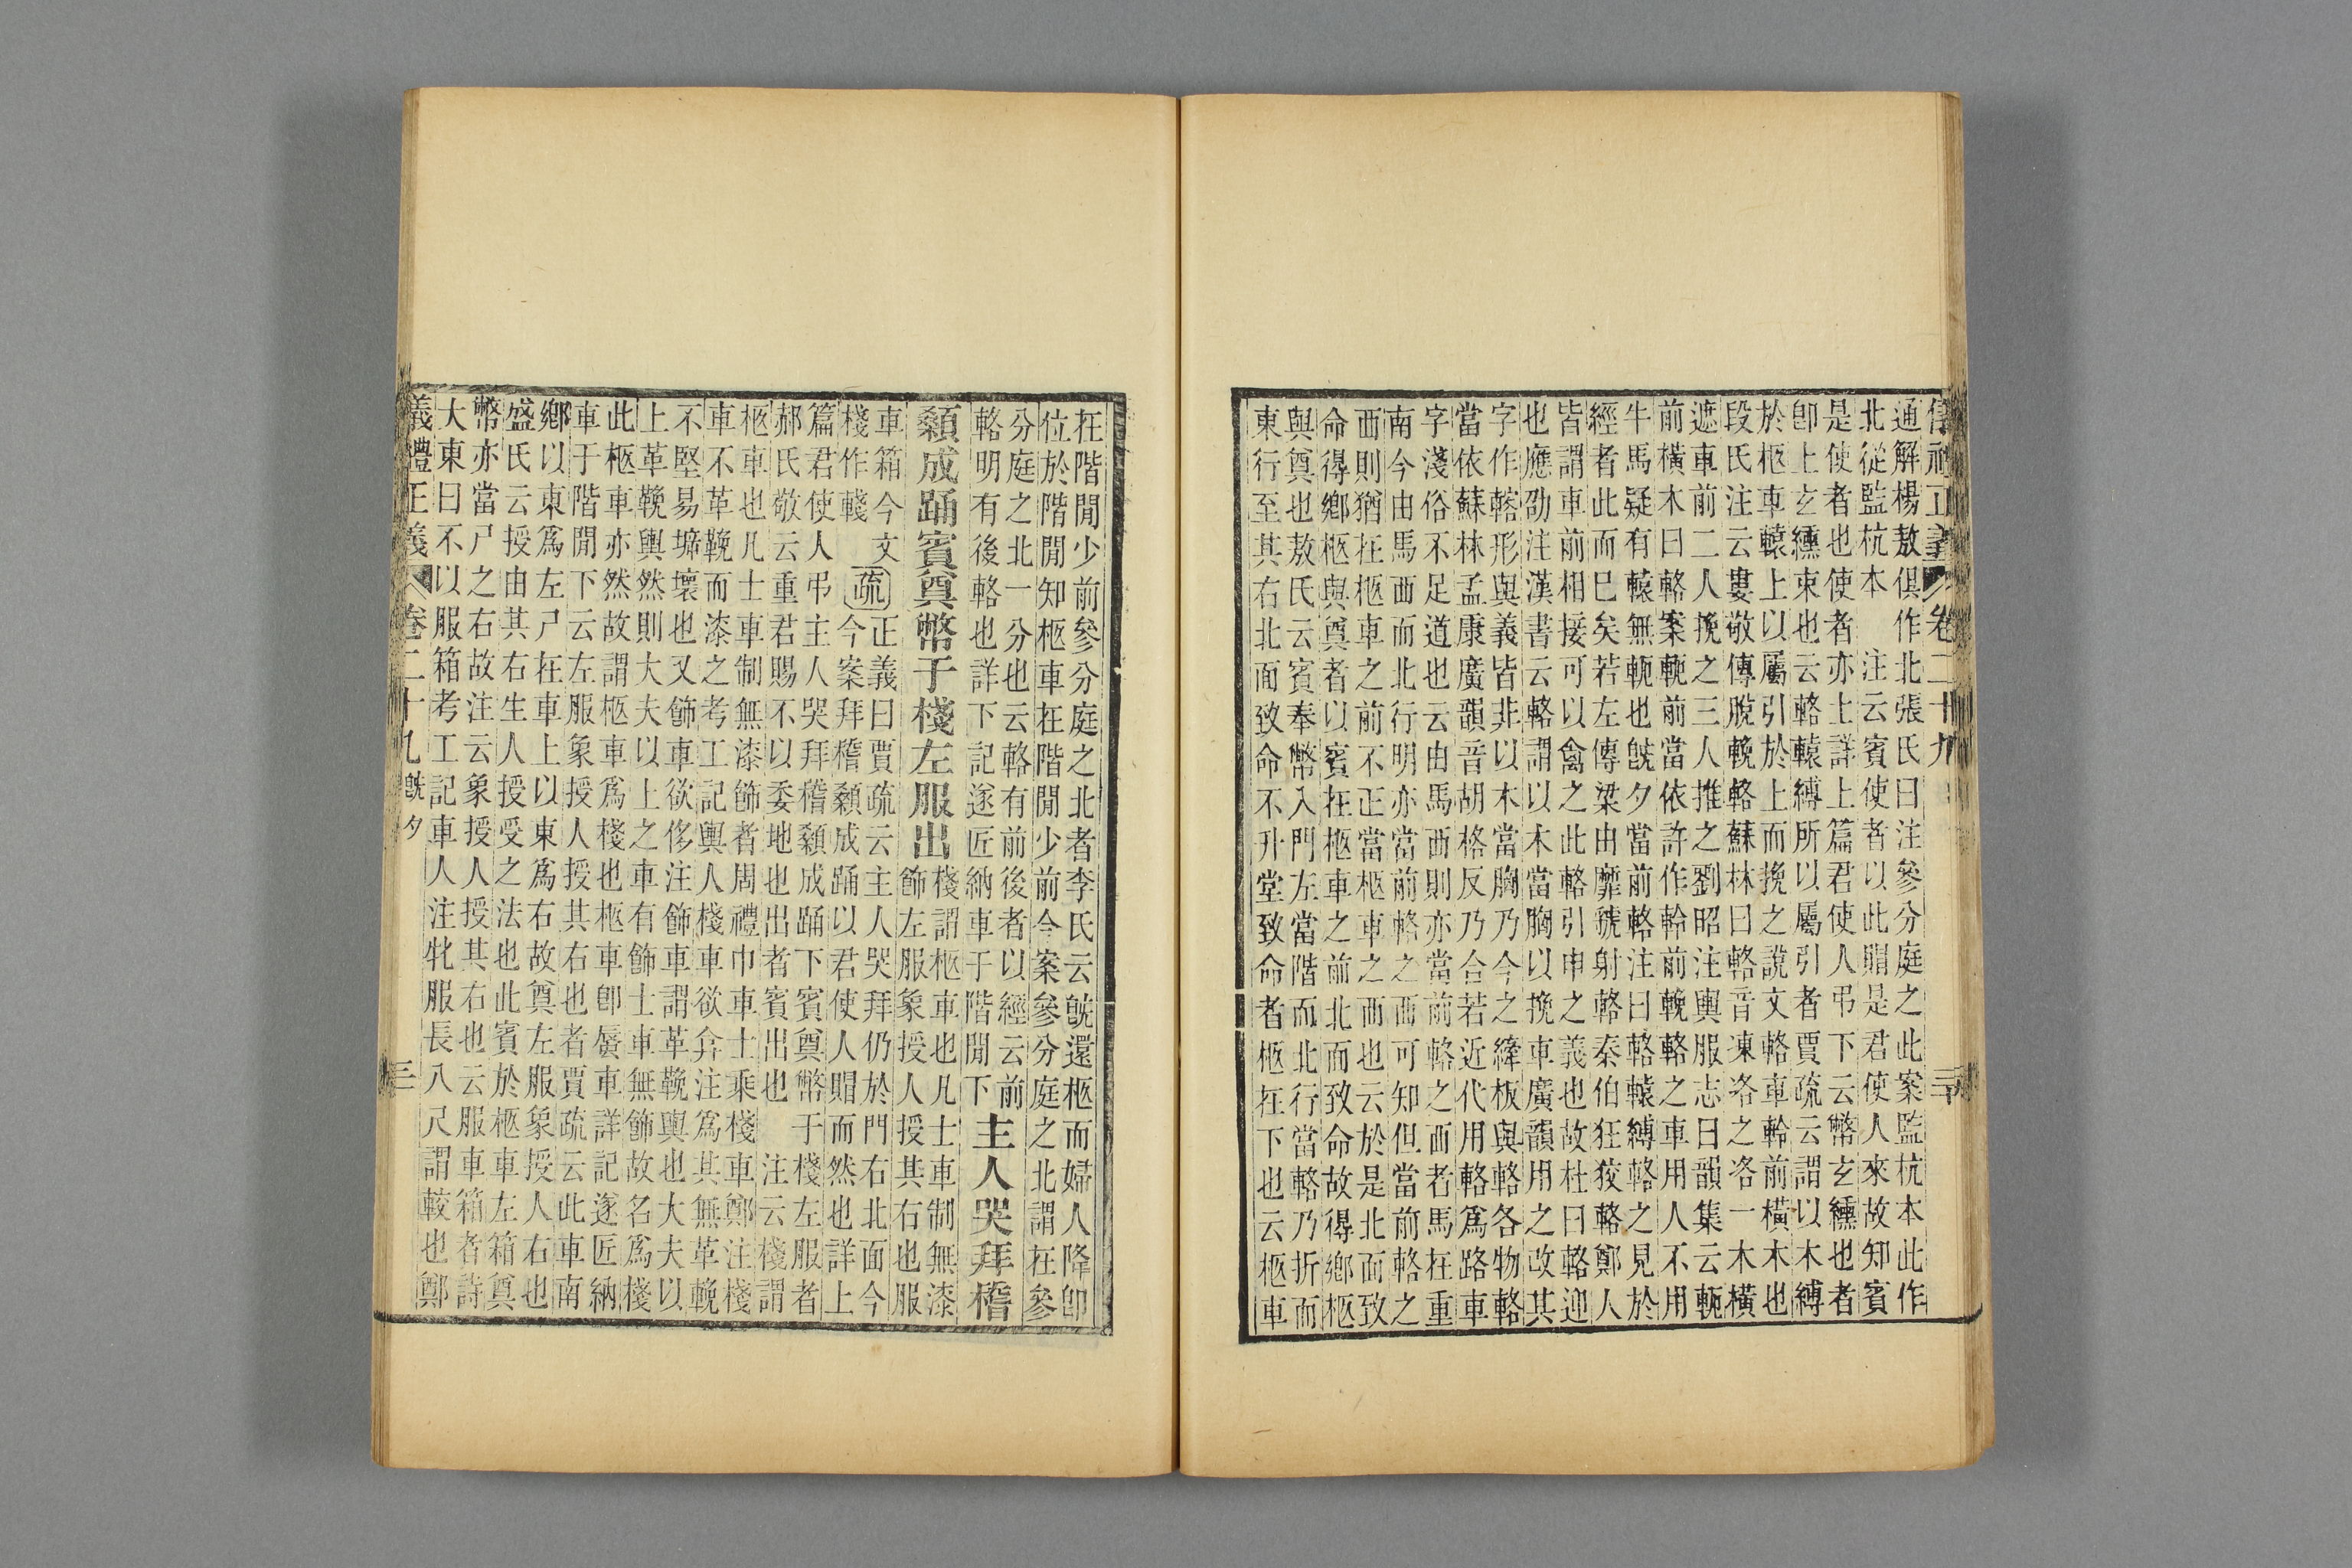 儀禮正義 卷二十九
通解楊敖俱作北張氏曰注參分庭之此案監杭本此作
北從監杭本　注云賓使者以此賵是君使人來故知賓
是使者也使者亦士詳上篇君使人弔下云幣玄纁也者
卽上玄纁束也云輅轅縛所以屬引者賈疏云謂以木縛
於柩車轅上以屬引於上而挽之說文輅車軨前橫木也
段氏注云婁敬傳脫輓輅蘇林曰輅音凍洛之洛一木橫
遮車前二人挽之三人推之劉昭注輿服志曰韻集云軛
前橫木曰輅案軛前當依許作軨前輓輅之車用人不用
牛馬疑有轅無軛也旣夕當前輅注曰輅轅縛輅之見於
經者此而巳矣若左傳梁由靡虢射輅秦伯狂狡輅鄭人
皆謂車前相接可以禽之此輅引申之義也故杜曰輅迎
也應劭注漢書云輅謂以木當胸以挽車廣韻用之改其
字作輅形與義皆非以木當胸乃今之縴板與輅各物輅
當依蘇林孟康廣韻音胡格反乃合若近代用輅爲路車
字淺俗不足道也云由馬西則亦當前輅之西者馬在重
南今由馬西而北行明亦當前輅之西可知但當前輅之
西則猶在柩車之前不正當柩車之西也云於是北面致
命得鄉柩與奠者以賓在柩車之前北面致命故得鄉柩
與奠也敖氏云賓奉幣入門左當階而北行當輅乃折而
東行至其右北面致命不升堂致命者柩在下也云柩車
在階閒少前參分庭之北者李氏云旣還柩而婦人降卽
位於階閒知柩車在階閒少前今案參分庭之北謂在參
分庭之北一分也云輅有前後者以經云前
輅明有後輅也詳下記遂匠納車于階閒下
主人哭拜稽
顙成踊賓奠幣于棧左服出
棧謂柩車也凡士車制無漆
飾左服象授人授其右也服
車箱今文
棧作輚
疏
正義曰賈疏云主人哭拜仍於門右北面今
今案拜稽顙成踊以君使人賵而然也詳上
篇君使人弔主人哭拜稽顙成踊下賓奠幣于棧左服者
郝氏敬云重君賜不以委地也出者賓出也　注云棧謂
柩車也凡士車制無漆飾者周禮巾車士乘棧車鄭注棧
車不革鞔而漆之考工記輿人棧車欲弇注爲其無革輓
不堅易壞也又飾車欲侈注飾車謂革鞔輿也大夫以
上革鞔輿然則大夫以上之車有飾士車無飾故名爲棧
此柩車亦然故謂柩車爲棧也柩車卽蜃車詳記遂匠納
車于階閒下云左服象授人授其右也者賈疏云此車南
鄉以東爲左尸在車上以東爲右故奠左服象授人右也
盛氏云授由其右生人授受之法也此賓於柩車左箱奠
幣亦當尸之右故注云象授人授其右也云服車箱者詩
大東曰不以服箱考工記車人注牝服長八尺謂較也鄭
儀禮正義 卷二十九旣夕 三